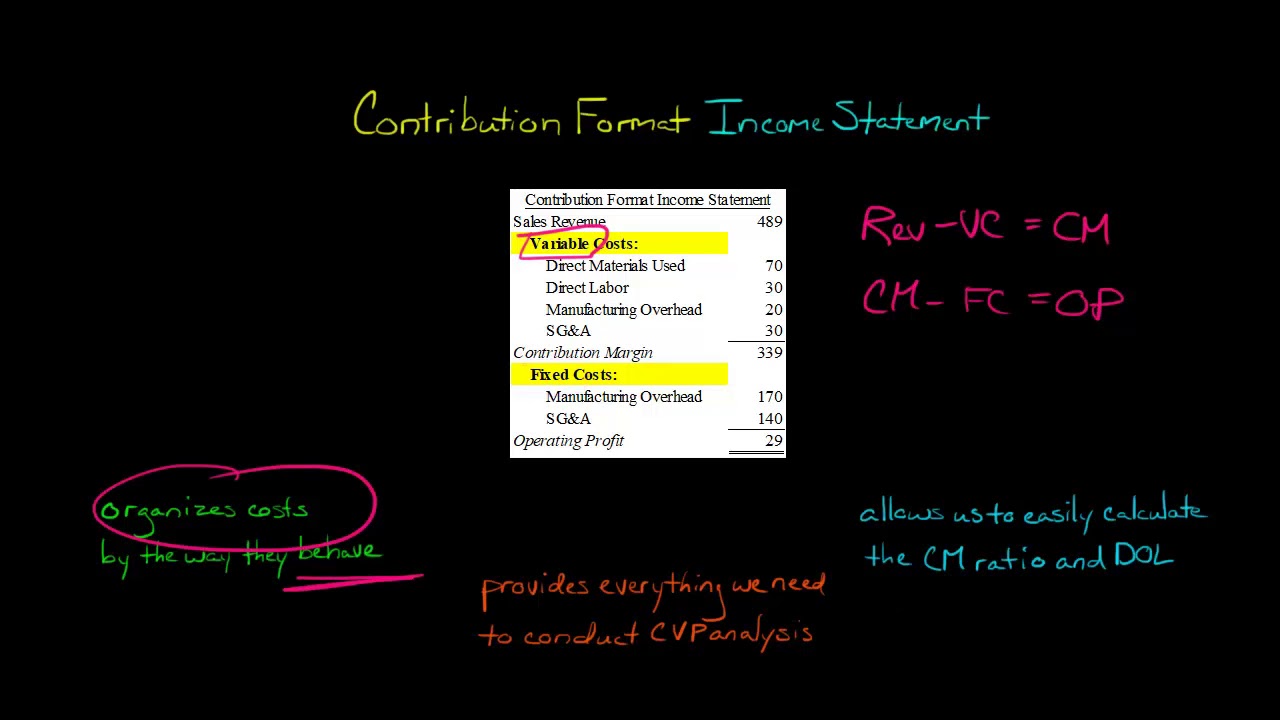 Contribution Format Income Statement
Contribution Format Income Statement
Sales Revenue 489
Variable Costs:
Direct Materials Used 70
Direct Labor 30
Manufacturing Overhead 20
SG&A 30
Contribution Margin 339
Fixed Costs:
Manufacturing Overhead 170
SG&A 140
Operating Profit 29
Rev - VC = CM
CM - FC = OP
organizes costs
by the way they behave
provides everything we need
to conduct CVP analysis
allows us to easily calculate
the CM ratio and DOL